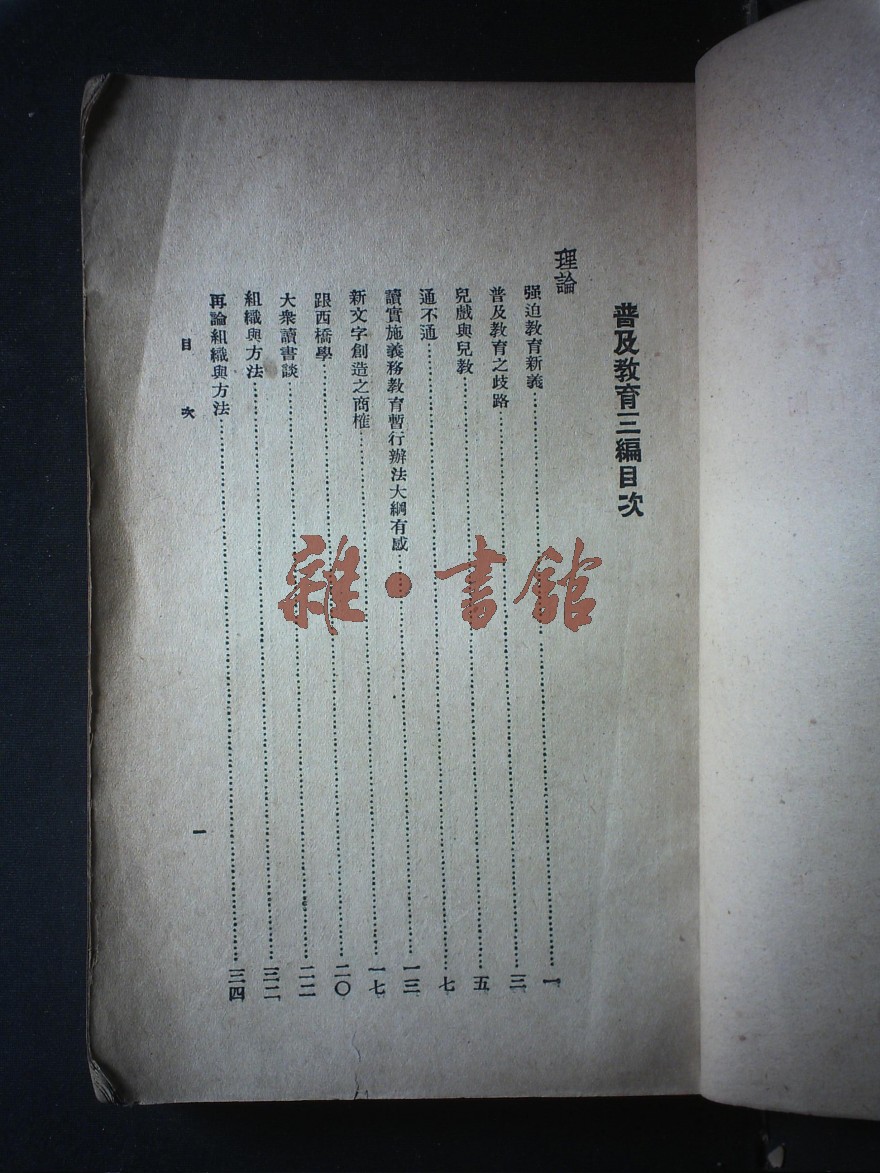 普及教育三編目次
理論
强迫教育新義⋯⋯一
普及教育之歧路⋯⋯三
兒戲與兒教⋯⋯五
通不通⋯⋯七
讀實施義務教育暫行辦法大綱有感⋯⋯一三
新文字創造之商榷⋯⋯一七
跟西橋學⋯⋯二〇
大衆讀書談⋯⋯二二
組織與方法⋯⋯三二
再論組織與方法⋯⋯三四
目次
一
雜·書館